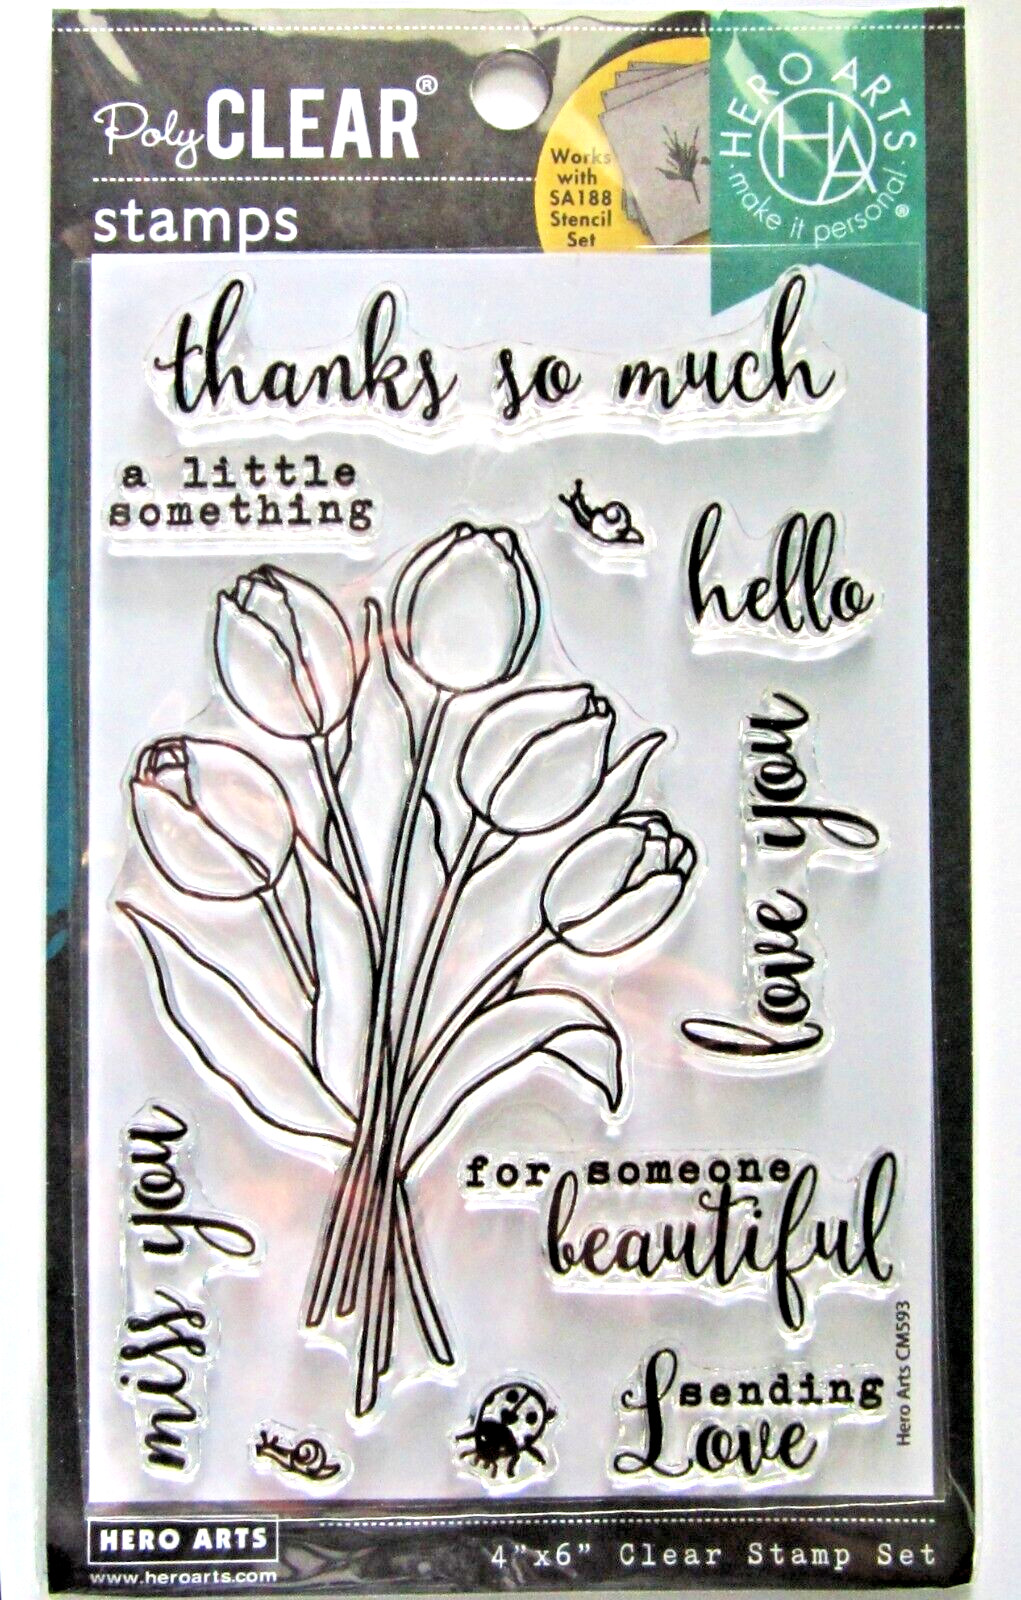 Poly CLEAR®
stamps
Works
with
SA188
Stencil
Set
HERO ARTS
HA
· make it personal · ®
thanks so much
a little
something
hello
love you
miss you
for someone
beautiful
sending
Love
Hero Arts CM593
HERO ARTS
www.heroarts.com
4”x6” Clear Stamp Set